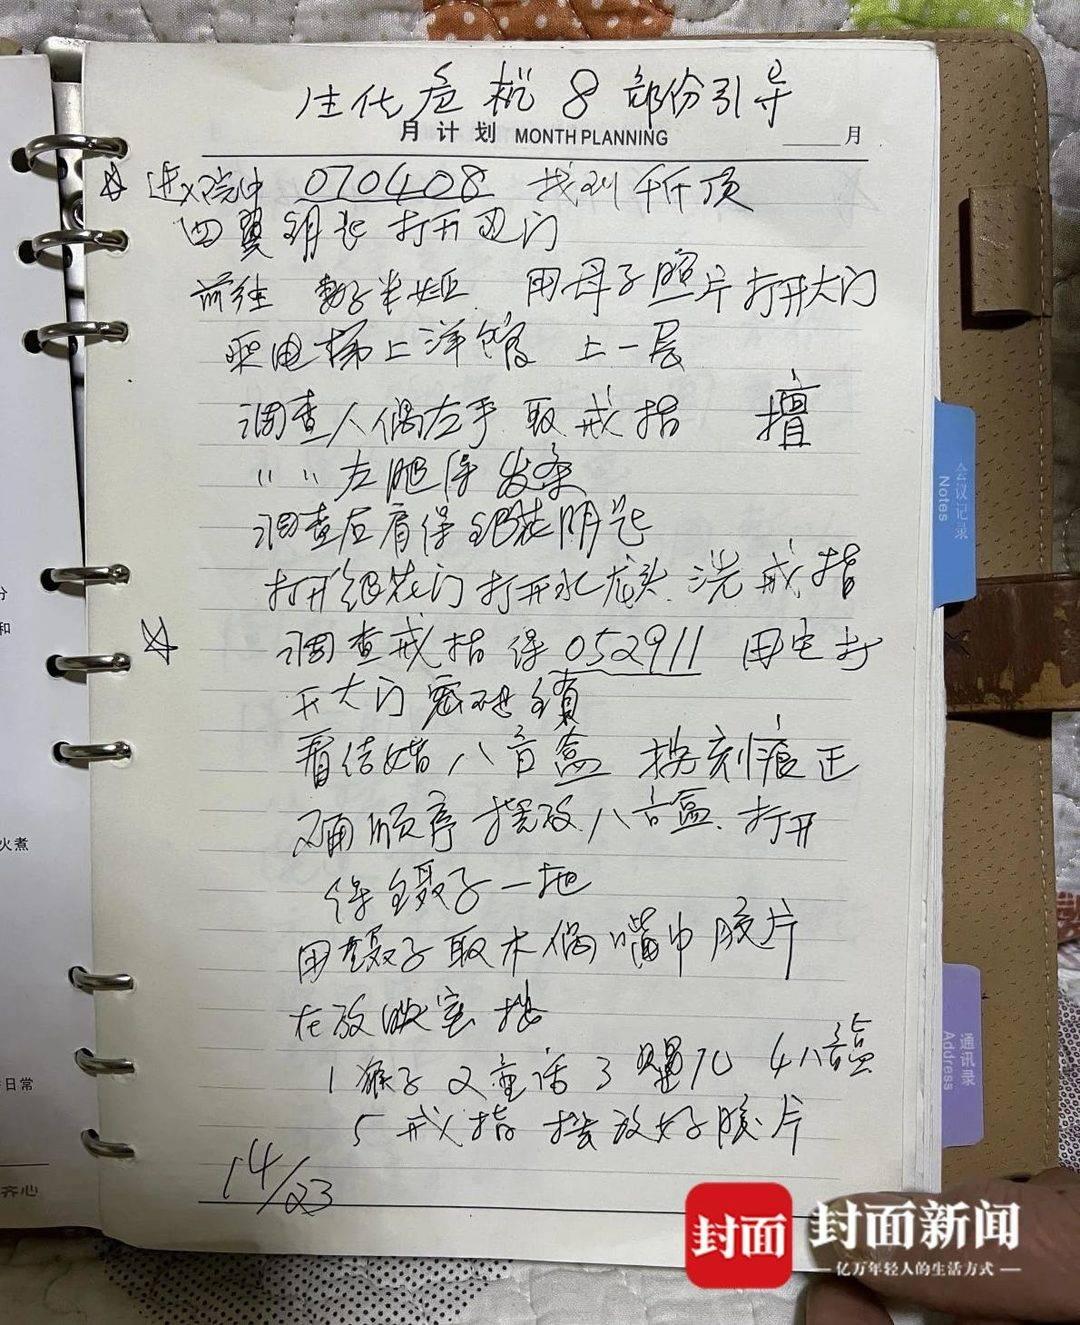 生化危机 8 部份引导
月计划 MONTH PLANNING ____月
☆ 进入院中 070408 找到千斤顶
四翼钥匙打开边门
前往 用母子照片打开大门
乘电梯上洋馆 上一层
调查人偶左手取戒指 擅
〃 〃 左腿得发条
调查右肩得 钥匙
打开 门打开水龙头洗戒指
☆ 调查戒指得052911 用它打
开大门密码锁
看结婚八音盒 按刻痕正
确顺序摆放八音盒.打开
得镊子一把
用镊子取木偶嘴中胶片
在放映室把
1猴子2童话3婴儿4八音盒
5戒指 摆放好胶片
14/23
会议记录
Notes
通讯录
Address
分
和
火煮
日常
齐心
封面
封面新闻
亿万年轻人的生活方式